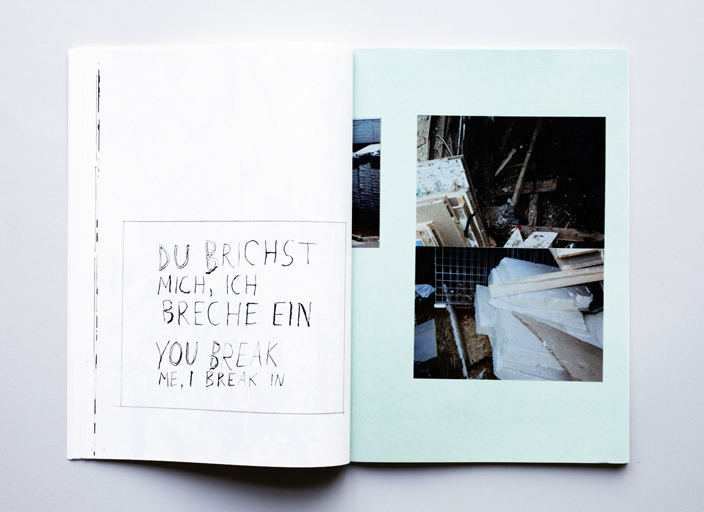 DU BRICHST
MICH, ICH
BRECHE EIN
YOU BREAK
ME, I BREAK IN